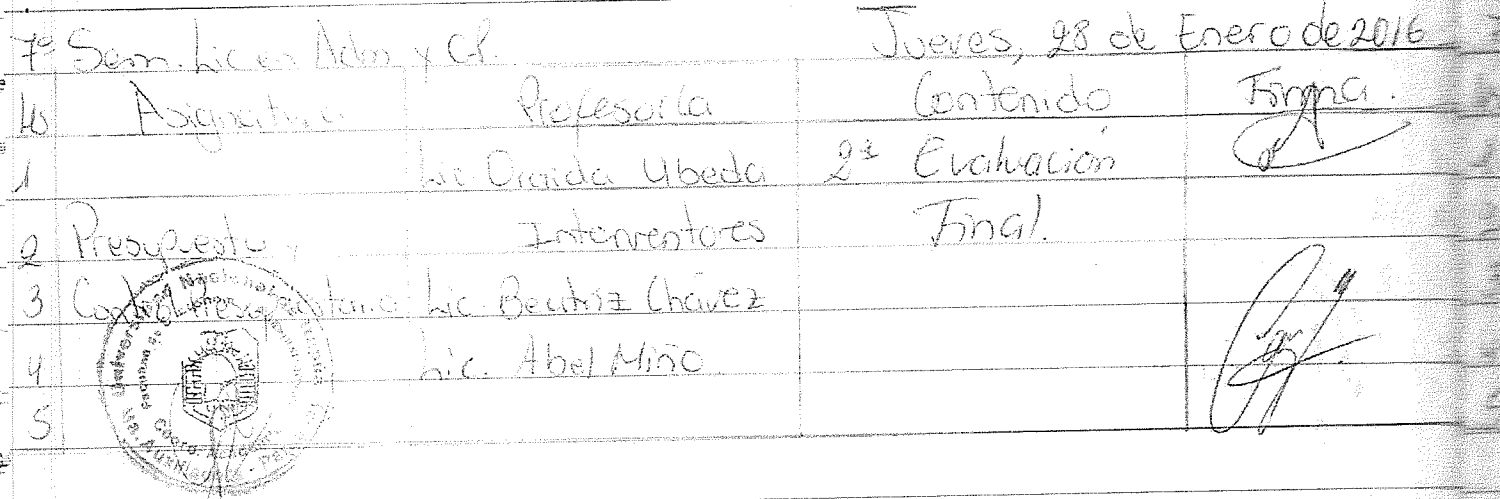 7º Sem. Lic en Adm y CP. Jueves, 28 de Enero de 2016
Hs Asignatura Profesor/a Contenido Firma.
1 Lic. Oraida Ubeda 2ª Evaluación
2 Presupuesto y Interventores Final.
3 Control Presupuestario Lic. Beatriz Chávez
4 Lic. Abel Miño
5
Universidad Nacional